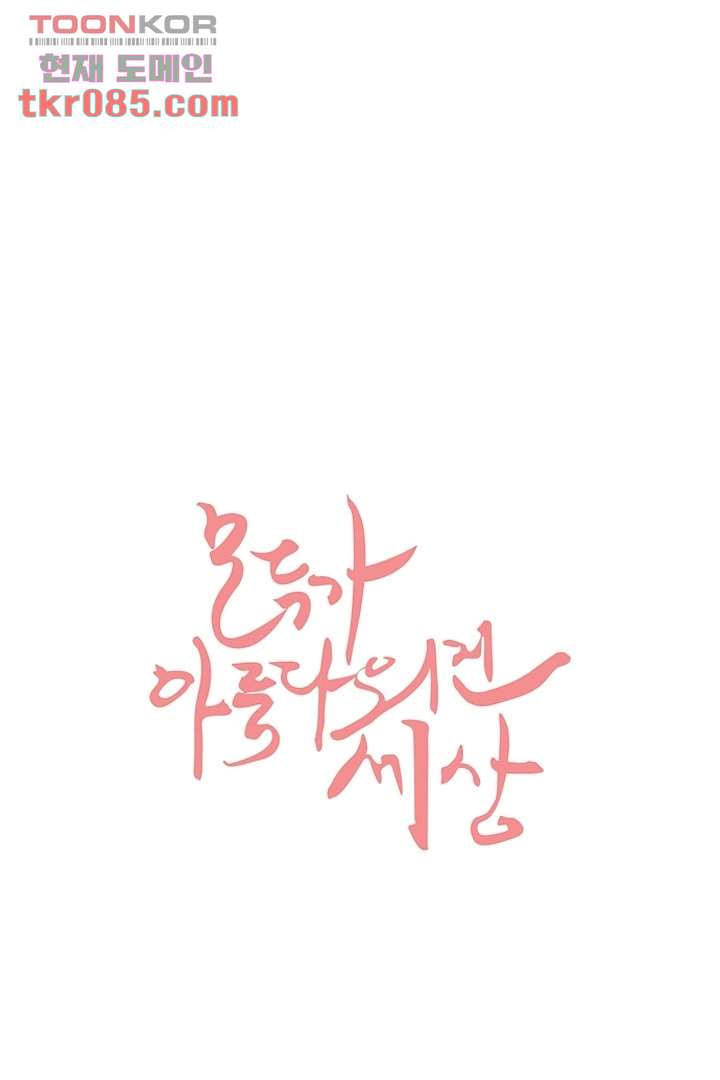 TOONKOR
현재 도메인
tkr085.com
모두가
아름다워진
세상